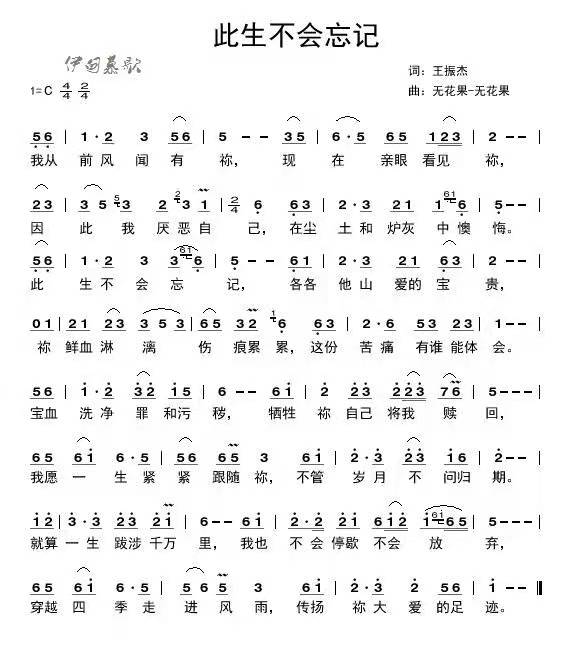 此生不会忘记
伊甸慕歌
词：王振杰
1=C 4/4 2/4
曲：无花果-无花果
5 6 | 1·2 3 5 6 | 5 - - 3 5 | 6·5 6 5 1 2 3 | 2 - - |
我从 前风闻有祢，现在亲眼看见祢，
2 3 | 3 5 5 3 2 2 3 1 | 2/4 6 6 3 | 2·3 2 1 1 6 1 6 | 5 - - |
因此我厌恶自己，在尘土和炉灰中懊悔。
5 6 | 1·2 3 3 6 1 6 | 5 - - 6 1 | 2·3 2 1 6 3 | 2 - - |
此生不会忘记，各各他山爱的宝贵，
0 1 2 1 2 3 3 5 3 | 6 5 3 2 1 6 6 3 | 2·3 5 3 2 3 | 1 - - |
祢鲜血淋漓伤痕累累，这份苦痛有谁能体会。
5 6 | 1·2 3 2 1 5 | 6 - - 6 1 | 2·2 2 2 3 7 6 | 5 - - |
宝血洗净罪和污秽，牺牲祢自己将我赎回，
6 5 6 1 | 6·5 5 6 6 5 | 3 - - 6 1 | 2·3 2 3 1 6 | 2 - - |
我愿一生紧紧跟随祢，不管岁月不问归期。
1 2 | 3·3 2 3 2 1 | 6 - - 6 1 | 2·2 2 1 6 1 2 1 6 1 6 5 | 5 - - |
就算一生跋涉千万里，我也不会停歇不会放弃，
6 5 6 1 | 6·5 5 6 5 | 3 6 1 2·3 | 2 5 6 | 1 - - ‖
穿越四季走进风雨，传扬祢大爱的足迹。